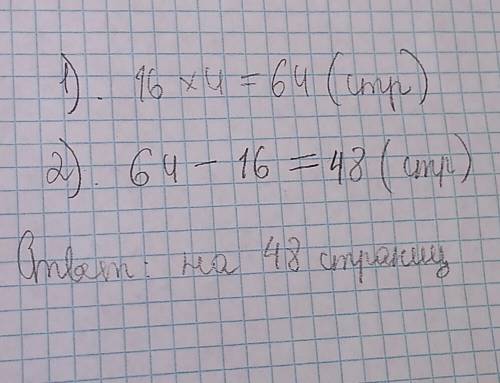 1). 16 × 4 = 64 (стр)
2). 64 - 16 = 48 (стр)
Ответ: на 48 страниц